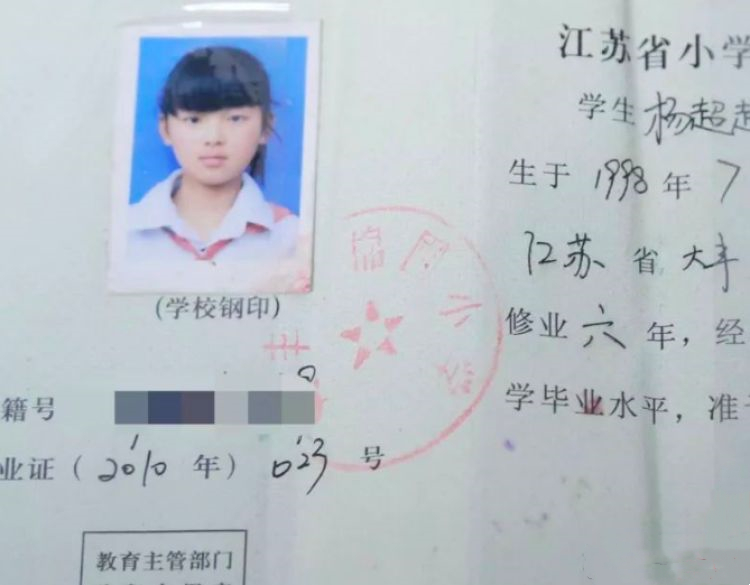 (学校钢印)
籍号
业证(2010年)023号
教育主管部门
江苏省小学
学生 杨超越
生于 1998 年 7
江苏 省 大丰
修业 六 年, 经
学毕业水平, 准